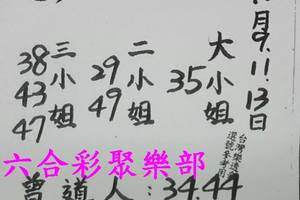 月9.11.13日
大小姐
35
二小姐
29
49
三小姐
38
43
47
台灣樂透
選號參考用
六合彩聚樂部
曾道人:34.44